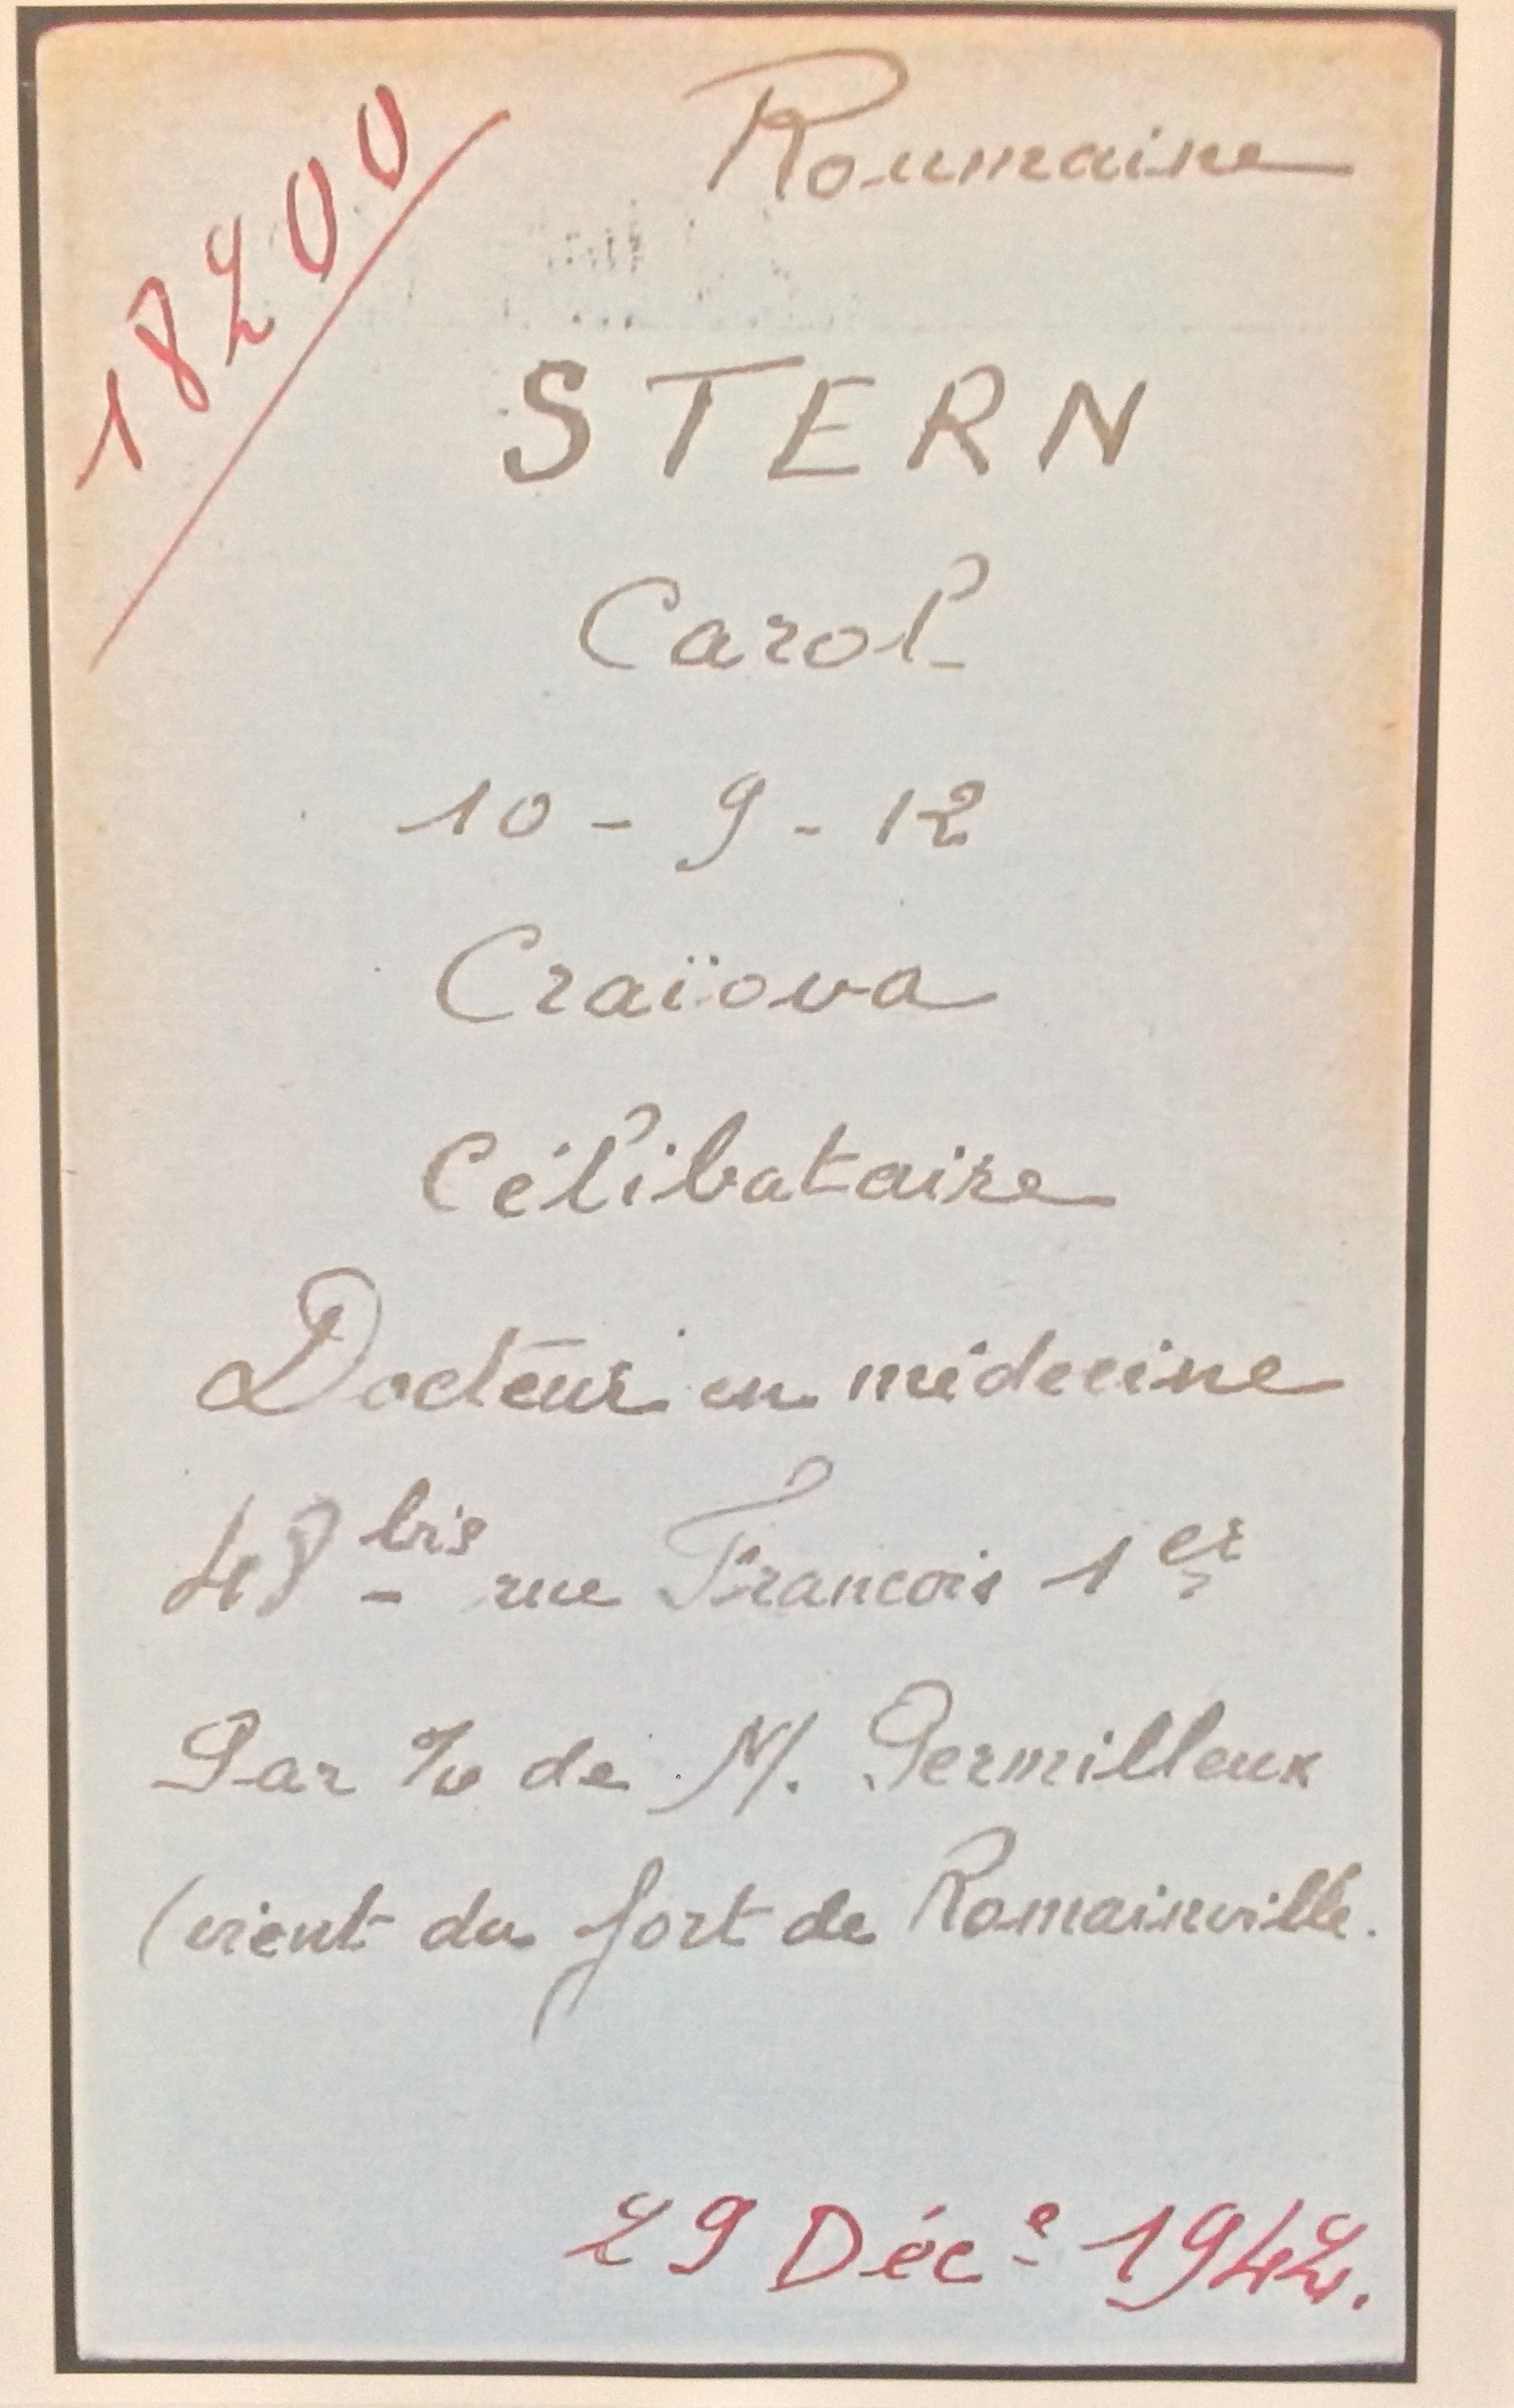 18200
Roumaine
STERN
Carol
10 - 9 - 12
Craïova
Célibataire
Docteur en médecine
48 bis - rue Francois 1er
Par % de M. Permilleux
(vient du fort de Romainville.
29 Déc e 1942.